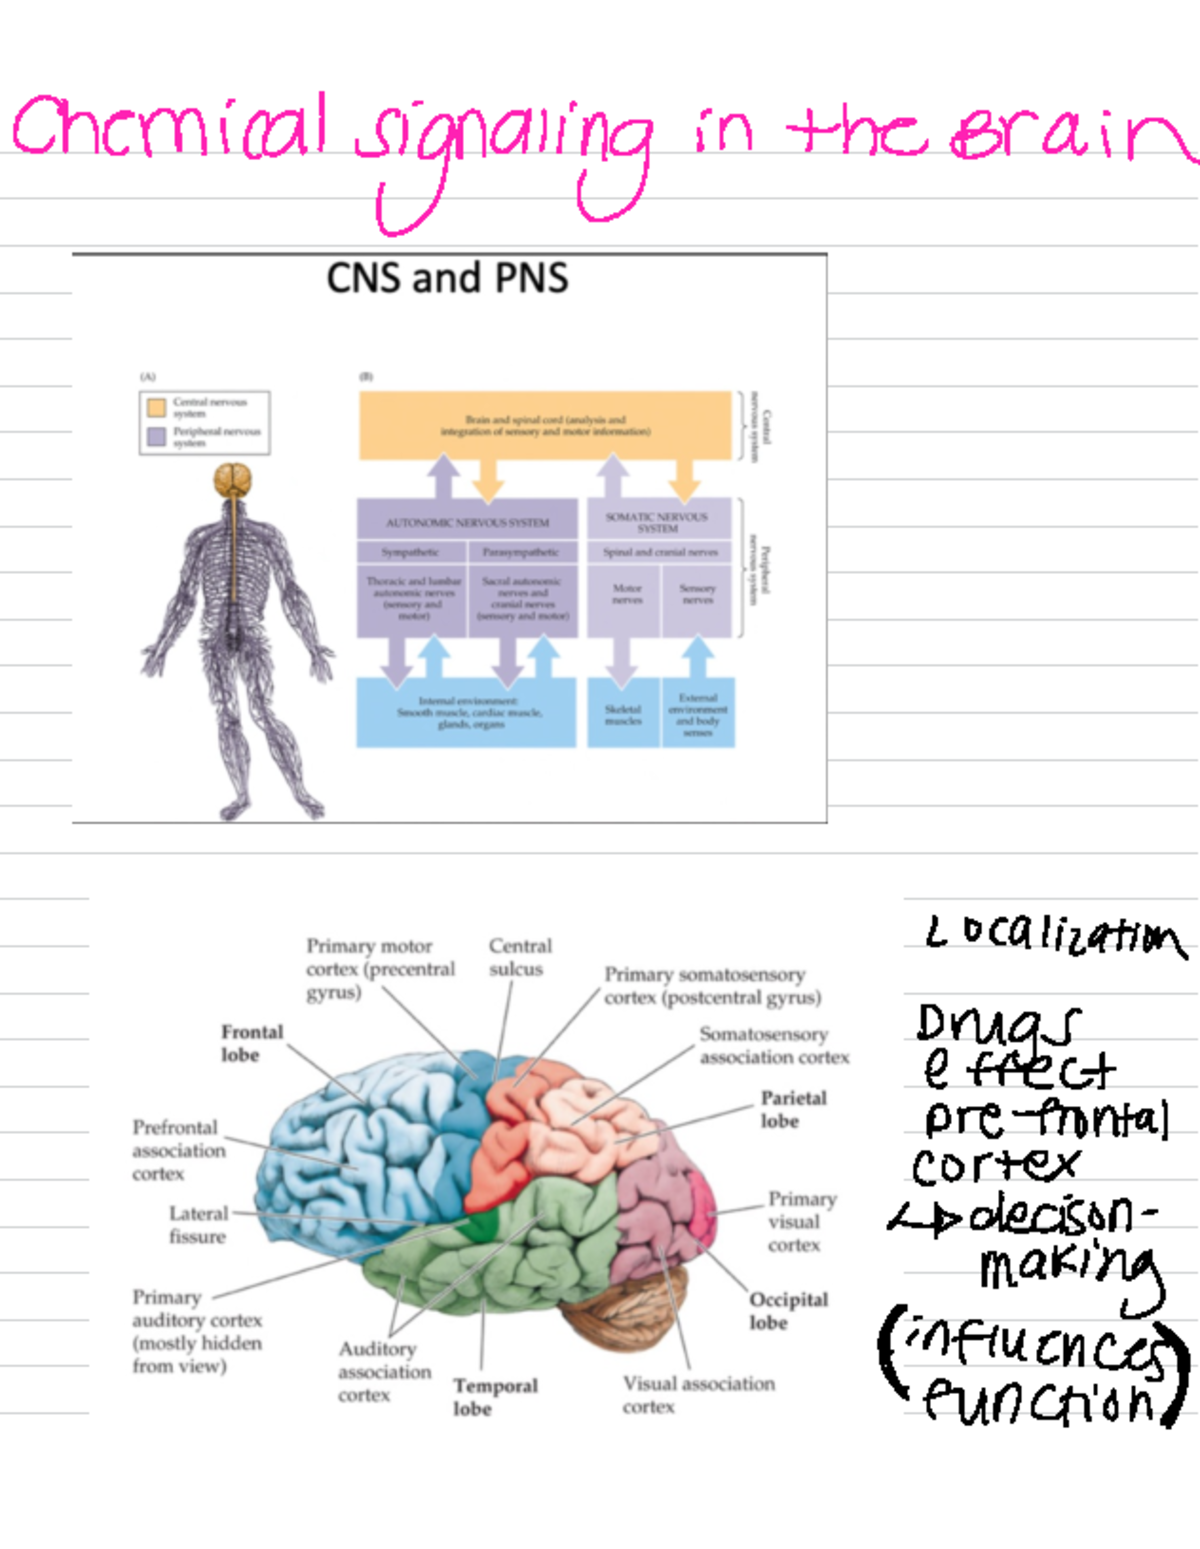 Chemical signaling in the Brain
CNS and PNS
(A)
(B)
Central nervous
system
Peripheral nervous
system
Brain and spinal cord (analysis and
integration of sensory and motor information)
Central
nervous system
AUTONOMIC NERVOUS SYSTEM
SOMATIC NERVOUS
SYSTEM
Sympathetic
Parasympathetic
Spinal and cranial nerves
Thoracic and lumbar
autonomic nerves
(sensory and
motor)
Sacral autonomic
nerves and
cranial nerves
(sensory and motor)
Motor
nerves
Sensory
nerves
Peripheral
nervous system
Internal environment:
Smooth muscle, cardiac muscle,
glands, organs
Skeletal
muscles
External
environment
and body
senses
Primary motor
cortex (precentral
gyrus)
Central
sulcus
Primary somatosensory
cortex (postcentral gyrus)
Frontal
lobe
Somatosensory
association cortex
Parietal
lobe
Prefrontal
association
cortex
Lateral
fissure
Primary
visual
cortex
Primary
auditory cortex
(mostly hidden
from view)
Occipital
lobe
Auditory
association
cortex
Temporal
lobe
Visual association
cortex
Localization
Drugs
effect
pre-frontal
cortex
↳decison-
making
(influences
function)